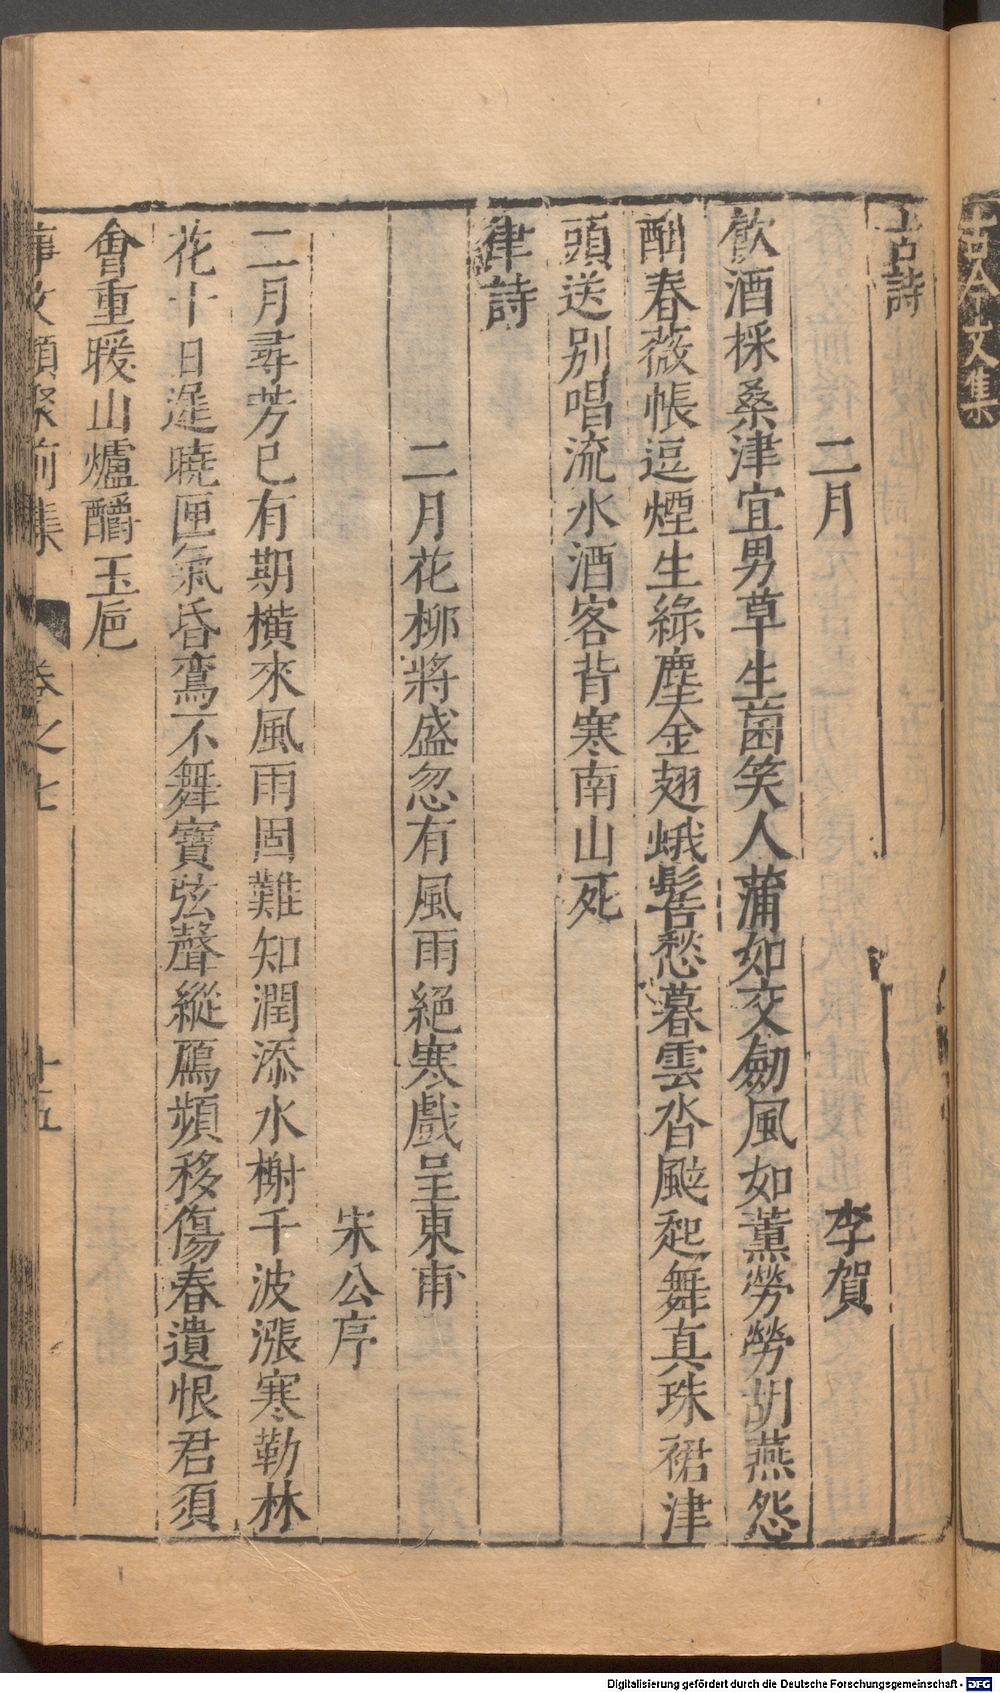 古今文集
古詩
二月　李賀
飲酒採桑津宜男草生菌笑人蒲如交劒風如薰勞勞胡燕怨
酣春薇帳逗煙生綠塵金翅蛾髻愁暮雲沓颭起舞真珠裙津
頭送别唱流水酒客背寒南山死
律詩
二月花柳將盛忽有風雨絕寒戲呈東甫
宋公序
二月尋芳已有期橫來風雨固難知潤添水榭千波漲寒勒林
花十日遲曉匣氣昏鸞不舞寶弦聲縱鴈頻移傷春遺恨君須
會重暖山爐釂玉巵
事文類聚前集　卷之七　十五
Digitalisierung gefördert durch die Deutsche Forschungsgemeinschaft - DFG